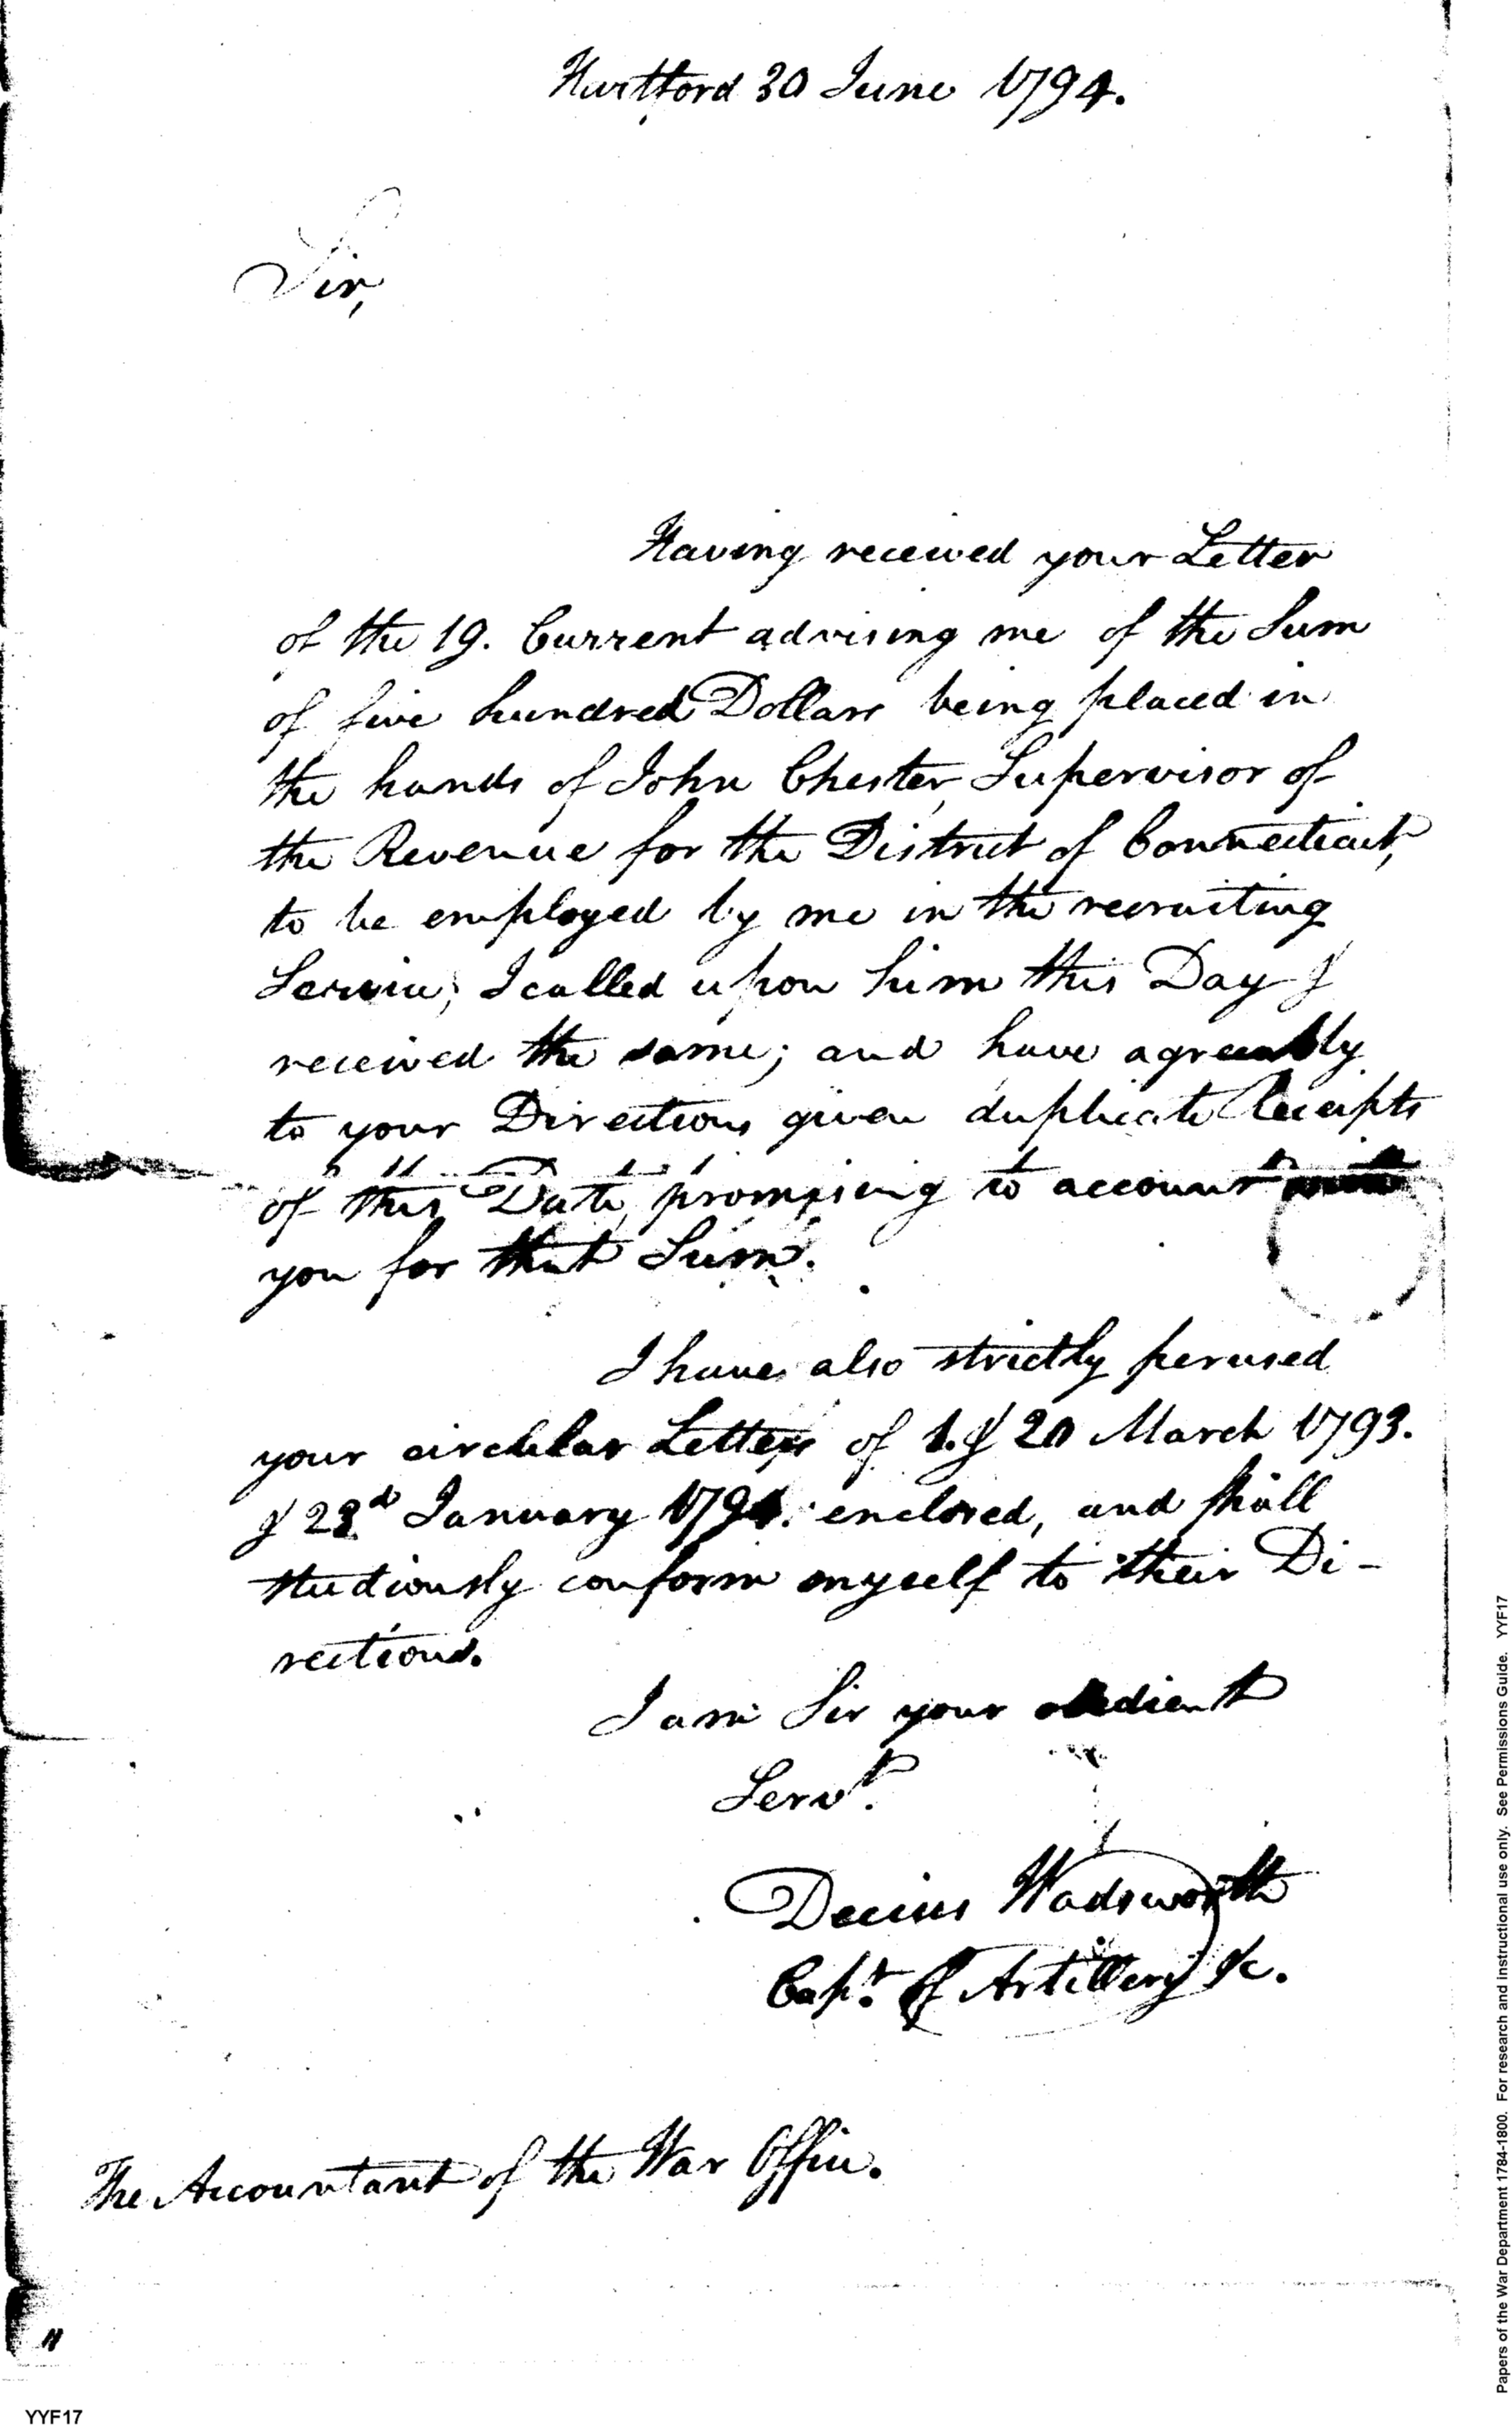 Hartford 30 June 1794.
Sir,
Having received your Letter
of the 19. Current advising me of the Sum
of five hundred Dollars being placed in
the hands of John Chester, Supervisor of
the Revenue for the District of Connecticut,
to be employed by me in the recruiting
Service; I called upon him this Day &
received the same; and have agreeably
to your Directions given duplicate Receipts
of this Date, promising to account with
you for that Sum.
I have also strictly perused
your circular Letters of 1. & 20 March 1793.
& 23.d January 1794. enclosed, and shall
studiously conform myself to their Di-
rections.
I am Sir your obedient
Servt.
Decius Wadsworth
Capt. of Artillery &c.
The Accountant of the War Office.
YYF17
Papers of the War Department 1784-1800. For research and instructional use only. See Permissions Guide. YYF17